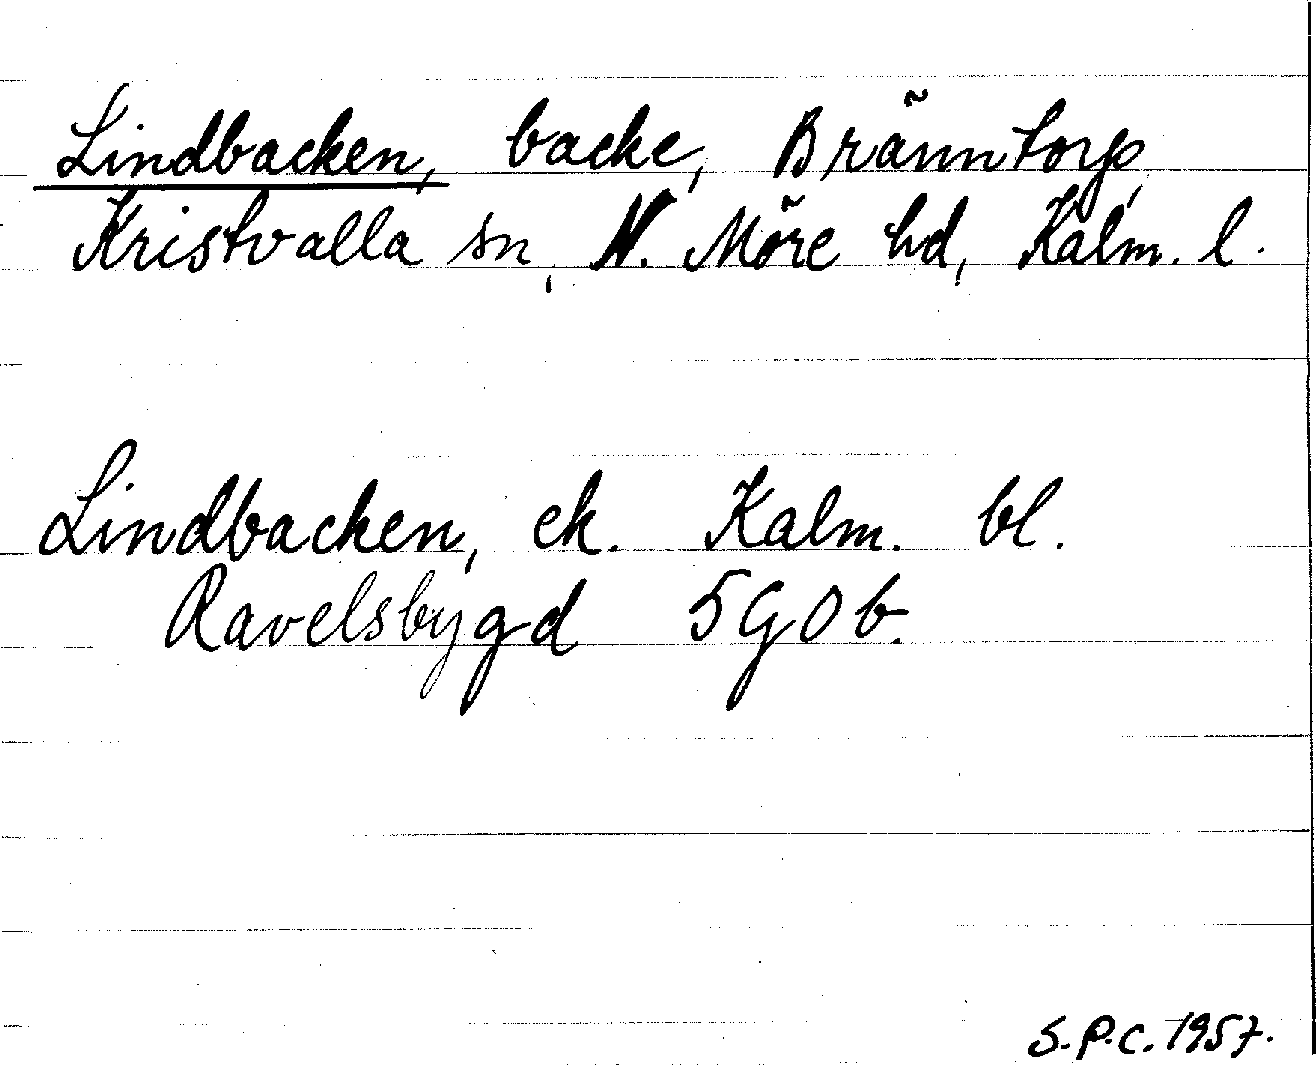 Lindbacken, backe, Bränntorp,
Kristvalla sn, N. Möre hd, Kalm. l.
Lindbacken, ek. Kalm. bl.
Ravelsbygd 5G0b.
S.P.C. 1957.